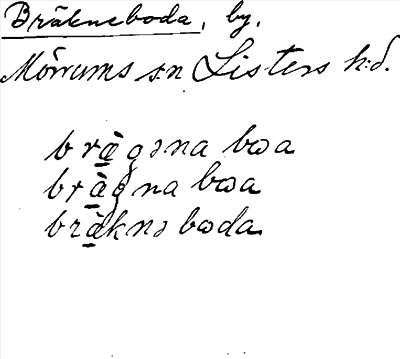 Bräkneboda, by,
Mörrums sn Listers h:d.
brä̀gəna bωa
brä̀gna bωa
brä̀knə bωda